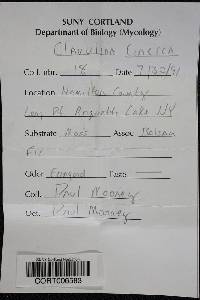 SUNY CORTLAND
Department of Biology (Mycology)
Clavulina Cinerea
Coll. nbr. 18 Date 7/30/91
Location Hamilton County
Long Pt. Raquette Lake NY
Substrate Moss Assoc. Balsam
Fir
Odor Fungoid Taste
Coll. Paul Mooney
Det. Paul Mooney
CORT006583